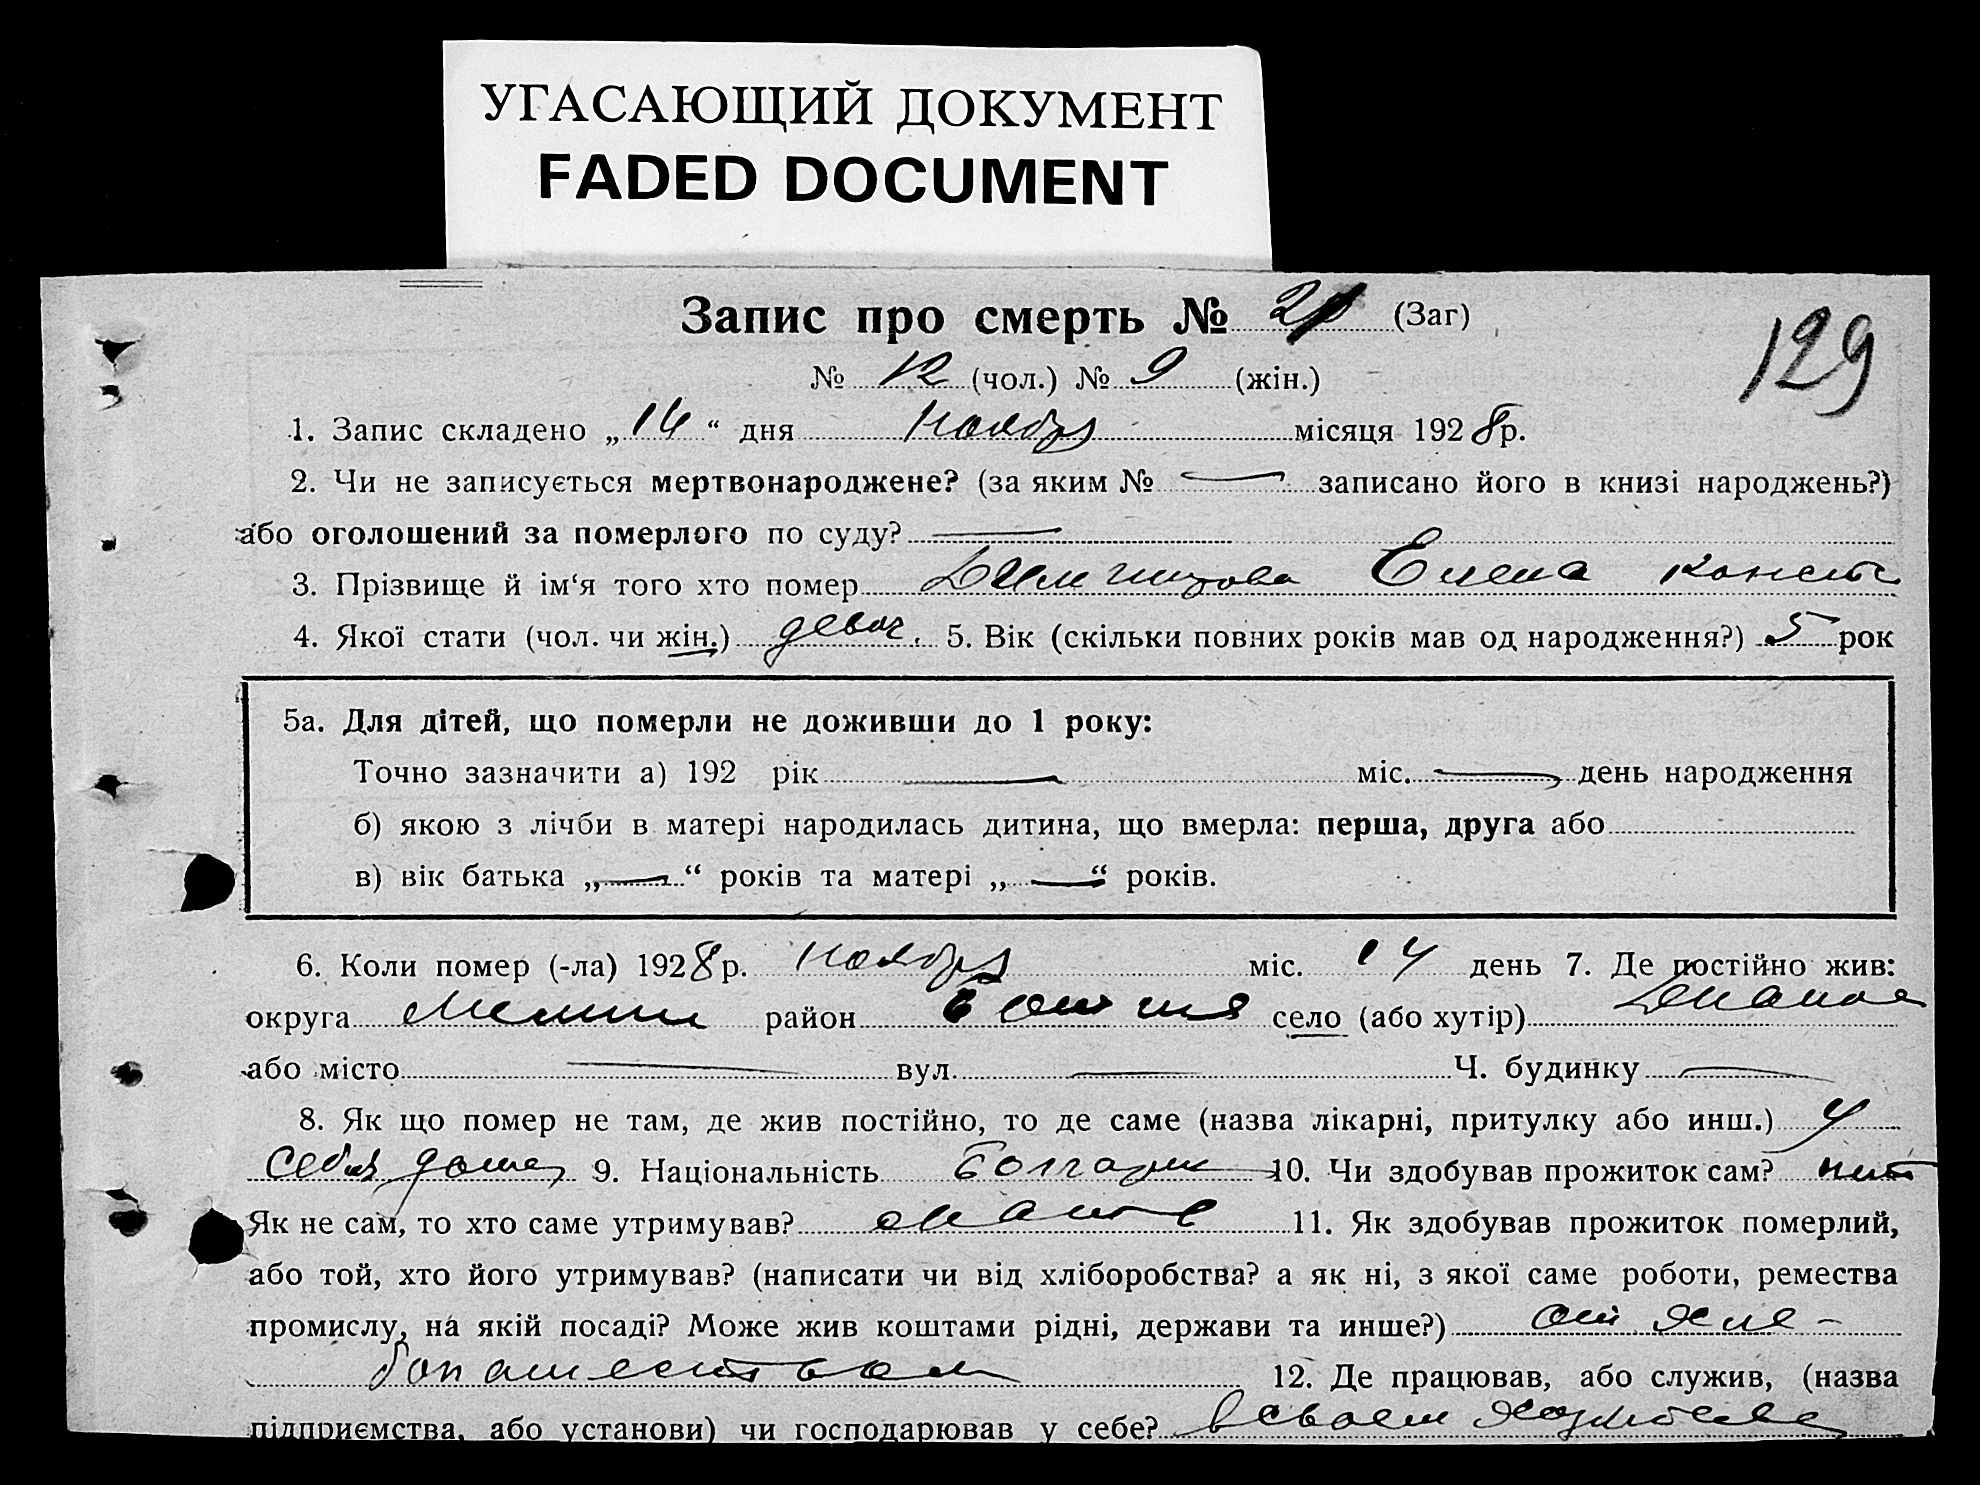 УГАСАЮЩИЙ ДОКУМЕНТ
FADED DOCUMENT
Запис про смерть № 21 (Заг)
129
№ 12 (чол.) № 9 (жін.)
1. Запис складено „16“ дня ноября місяця 1928 р.
2. Чи не записується мертвонароджене? (за яким № — записано його в книзі народжень?)
або оголошений за померлого по суду? —
3. Прізвище й ім‘я того хто помер Елена Конст
4. Якої стати (чол. чи жін.) девоч. 5. Вік (скільки повних років мав од народження?) 5 рок
5а. Для дітей, що померли не доживши до 1 року:
Точно зазначити а) 192 рік — міс. — день народження
б) якою з лічби в матері народилась дитина, що вмерла: перша, друга або
в) вік батька „—“ років та матері „—“ років.
6. Коли помер (-ла) 1928 р. ноября міс. 14 день 7. Де постійно жив:
округа Мелит район село (або хутір)
або місто — вул. — Ч. будинку —
8. Як що помер не там, де жив постійно, то де саме (назва лікарні, притулку або инш.) у
себя дома 9. Національність Болгарк 10. Чи здобував прожиток сам? нет
Як не сам, то хто саме утримував? 11. Як здобував прожиток померлий,
або той, хто його утримував? (написати чи від хліборобства? а як ні, з якої саме роботи, ремества
промислу, на якій посаді? Може жив коштами рідні, держави та инше?) от хле-
бопашеством 12. Де працював, або служив, (назва
підприємства, або установи) чи господарював у себе? в своем хозяйстве